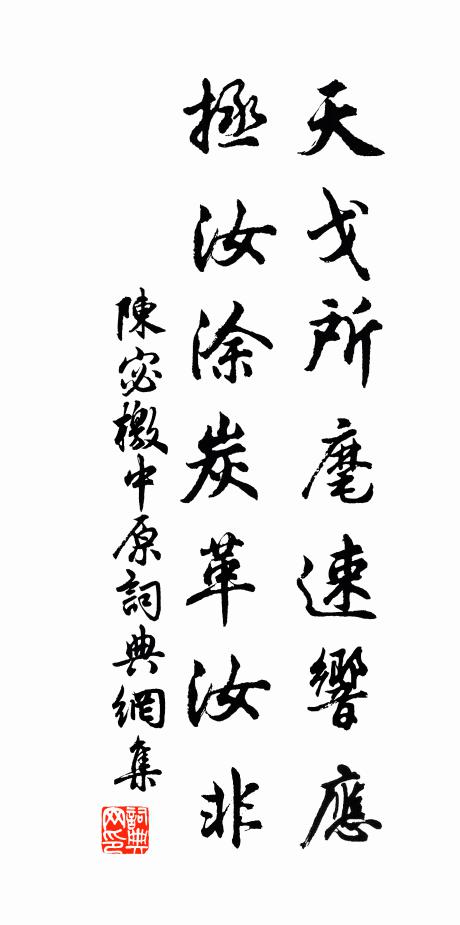 天戈所麾速響應
拯汝涂炭革汝非
陳宓檄中原詞典網集
詞典网印